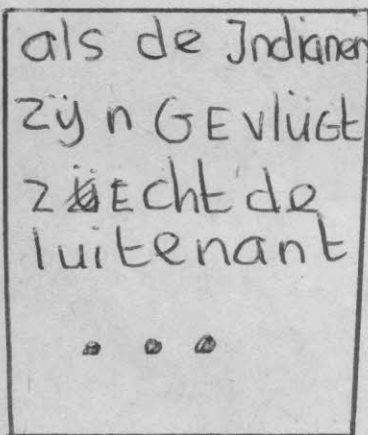 als de Indianen
zijn GEvlugt
zEcht de
luitenant
...